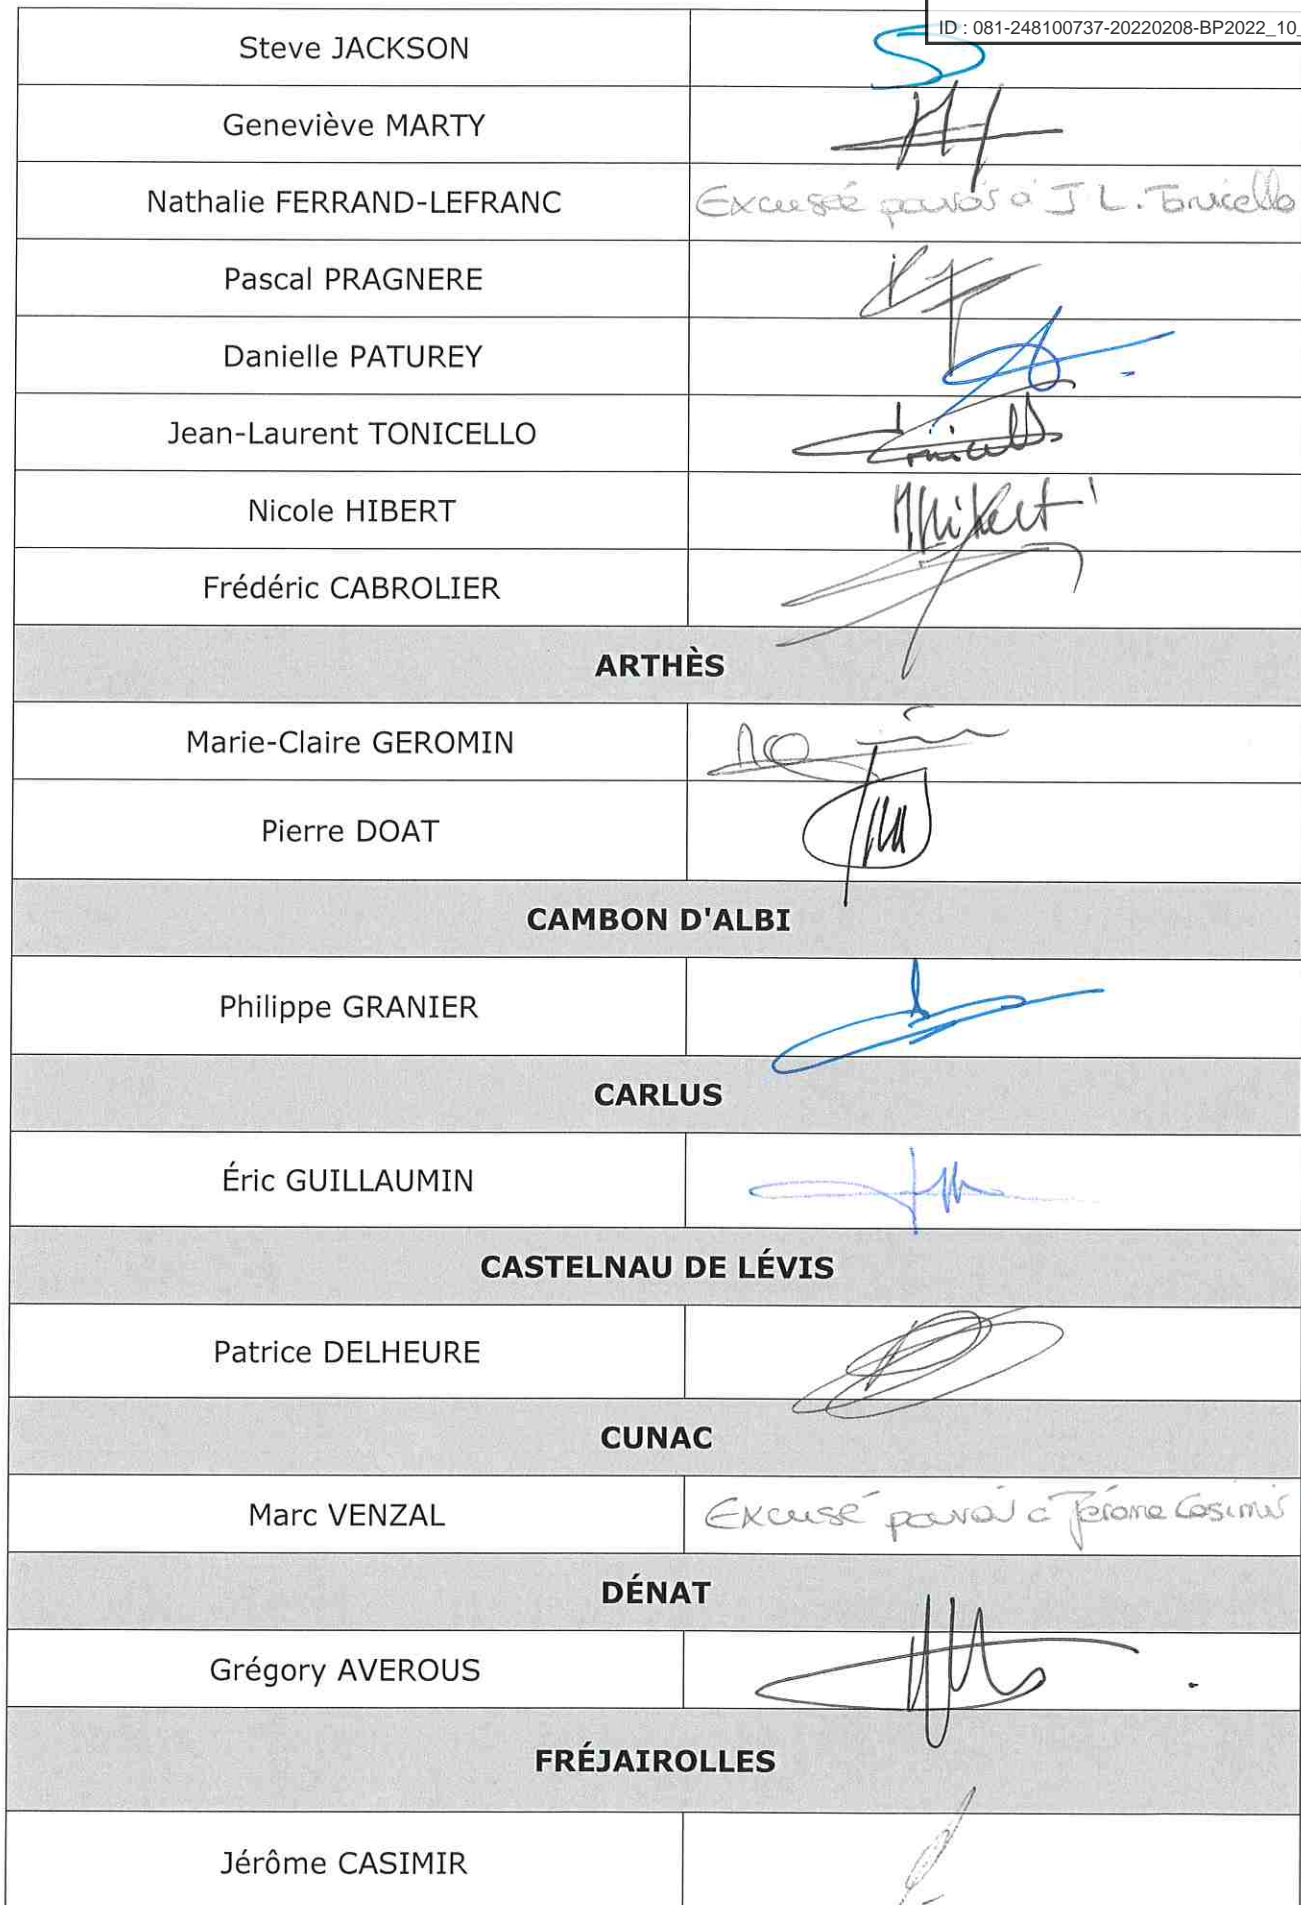 ID : 081-248100737-20220208-BP2022_10_
Steve JACKSON
Geneviève MARTY
Nathalie FERRAND-LEFRANC Excusée pouvoir à J L. Tonicello
Pascal PRAGNERE
Danielle PATUREY
Jean-Laurent TONICELLO Tonicello
Nicole HIBERT NHibert
Frédéric CABROLIER
ARTHÈS
Marie-Claire GEROMIN
Pierre DOAT
CAMBON D'ALBI
Philippe GRANIER
CARLUS
Éric GUILLAUMIN
CASTELNAU DE LÉVIS
Patrice DELHEURE
CUNAC
Marc VENZAL Excusé pouvoir à Jérôme Casimir
DÉNAT
Grégory AVEROUS
FRÉJAIROLLES
Jérôme CASIMIR